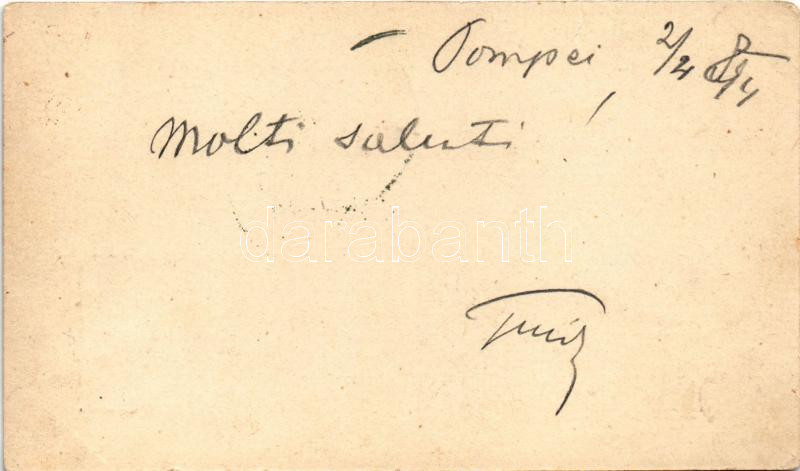 Pompei, 2/4
Molti saluti!
darabanth